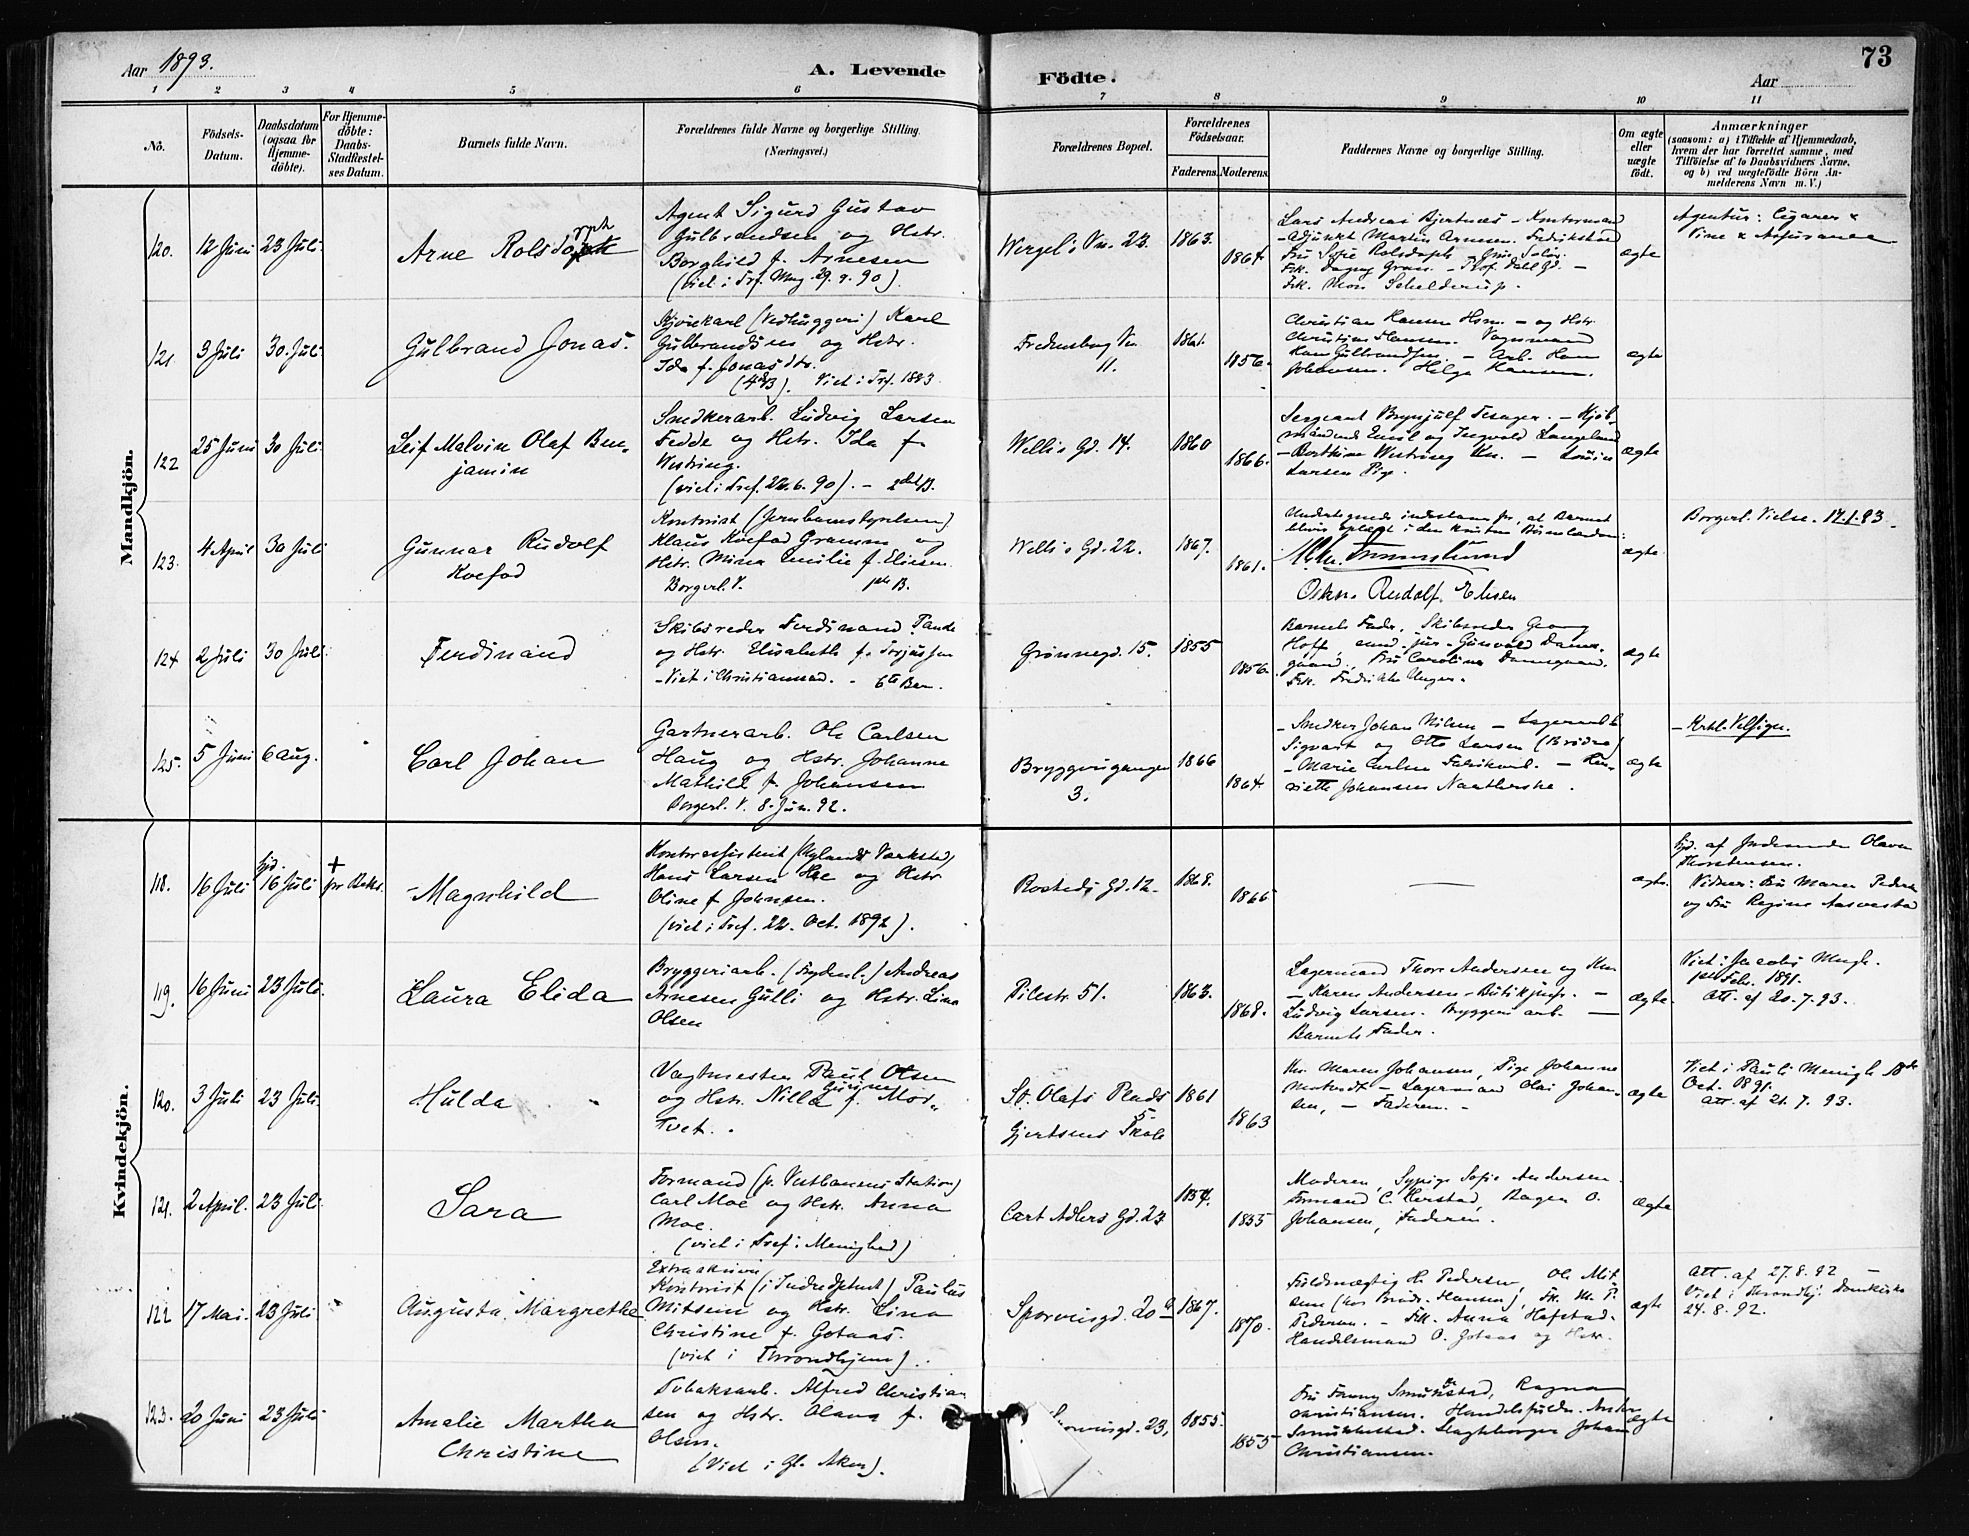 Aar 1893.
A. Levende
Födte.
Aar
73
1 2 3 4 5 6 7 8 9 10 11
No.
Födsels-
Datum.
Daabsdatum
(ogsaa for
Hjemme-
döbte).
For Hjemme-
döbte:
Daabs-
Stadfestel-
ses Datum.
Barnets fulde Navn.
Forældrenes fulde Navne og borgerlige Stilling.
(Næringsvei.)
Forældrenes Bopæl.
Forældrenes
Födselsaar.
Faderens. Moderens.
Faddernes Navne og borgerlige Stilling.
Om ægte
eller
uægte
födt.
Anmærkninger
(saasom: a) i Tilfælde af Hjemmedaab,
hvem der har forrettet samme, med
Tilföielse af to Daabsvidners Navne,
og b) ved uægtefödte Börn An-
melderens Navn m. V.)
Mandkjön.
120. 12 Juni 23 Juli
Arne Rolsdorph
Agent Sigurd Gustav
Gulbrandsen og Hstr.
Borghild f. Arnesen
(viet i Trf. Mng. 29. 9. 90).
Wergel's Vn. 23. 1863. 1864.
Lars Andreas Bjertnæs - Kontormand
- Adjunkt Martin Arnesen. Fredrikstad
Fru Sofie Rolsdorph
ægte
Agentur: Cigarer &
Vine & Assurance
121. 3 Juli 30. Juli
Gulbrand Jonas.
(Vedhuggeri) Karl
Gulbrandsen og Hstr.
Ida f. Jonasdtr.
(4de B). Viet i Trf. 1883
Fredensborg Vn
11.
1861. 1856.
Christian Hansen Hsm. - og Hstr.
Christine Hansen. Vognmand
Hans Gulbrandsen. - Arb. Hans
Johansen. Helga Hansen.
ægte
122 25 Juni 30 Juli
Leif Malvin Olaf Ben-
jamin
Snedkerarb. Ludvig Larsen
Fedde og Hstr. Ida f.
Westring.
(viet i Tref. 22. 6. 90). - 2det B.
Wellis Gd. 14. 1860 1866.
Sergeant Brynjulf
Emil og Ingvald Langeland
Larsen Pige.
ægte
123. 4 April 30 Juli
Gunnar Rudolf
Koefod
Kontorist (Jernbanestyrelsen)
Klaus Koefod Gramm og
Hstr. Mina Emilie f. Eliesen.
Borgerl. V. 1ste B.
Wellis Gd. 22. 1867. 1861.
Undertegnede indestaar for, at Barnet
blive oplært i den kristne Börnelærdom:
Oskar Rudolf Eliesen
ægte
Borgerl. Vielse. 17.1.93.
124 2 Juli 30 Juli
Ferdinand
Skibsreder Ferdinand Tande
og Hstr. Elisabeth f. Torjussen
- Viet i Christianssand. - 6te Barn.
Grönnegd. 15. 1855 1856.
Barnets Fader, Skibsreder Georg
Hoff, cand. jur. Gunvald Dannegaard,
Fru Caroline Dannegaard.
Frk. Fredrikke Unger.
ægte
125. 5 Juni 6 Aug.
Carl Johan
Gartnerarb. Ole Carlsen
Haug og Hstr. Johanne
Mathilde f. Johansen
Borgerl. V. 8. Jun. 92.
Bryggerigangen
3.
1866 1864.
- Snedker Johan Nilsen -
Sigvart og Otto Larsen (Brödre)
- Marie Carlsen - Hen-
riette Johansen
ægte
- Kirkl. Velsign.
Kvindekjön.
118. 16 Juli hjd. 16 Juli +
Magnhild
Kontorassistent (Nylands Værksted)
Hans Larsen Hoe og Hstr
Oline f. Johnsen.
(viet i Tref. 22. Oct. 1892).
Rosteds Gd. 12. 1868. 1866
—
ægte.
hjd. af Jordemoder Olava
Thorstensen.
Vidner: Fru Maren Pedersen
og Fru Regine Aasvestad
119. 16 Juni 23 Juli
Laura Elida
Bryggeriarb. (Frydenl.) Andreas
Arnesen Gulli og Hstr. Lina
Olsen
Pilestr. 51. 1863. 1868.
Lagermand Thore Andersen og Kn
- Karen Andersen - Butikjomfr. -
Ludvig Larsen. Bryggeriarb. -
Barnets Fader.
ægte.
Viet i Jacobs Mngh.
1ste Febr. 1891.
Att. af 20. 7. 93.
120. 3 Juli 23 Juli
Hulda
Vagtmester Paul Olsen
og Hstr. Nilla Gurine f. Mor-
Tvet.
St. Olafs Plads
5.
Gjertsens Skole
1861 1863
Kn. Maren Johansen, Pige Johanne
- Lagermand Olai Johan-
sen, - Faderen. -
ægte
Viet i Pauli Menigh. 18de
Oct. 1891.
Att. af 21. 7. 93.
121. 2 April. 23 Juli
Sara
Formand (p. Vestbanens Station)
Carl Moe og Hstr. Anna
Moe.
(viet i Tref: Menighed)
Cart Adlers Gd. 23 1854. 1855
Moderen, Sypige Sofie Andersen.
Formand C. Herstad, Bager O.
Johansen, Faderen.
ægte
122 17 Mai. 23 Juli
Augusta Margrethe
Kontorist (i Indredpmt) Paulus
Mitsem og Hstr. Lina
Christine f. Gotaas.
(viet i Throndhjem).
Sporveisgd. 20 a 1867. 1870.
Fuldmægtig H. Pedersen, Ole Mit-
sem (hos Brödr. Hansen), Frk. M. P.
Pedersen. - Frk. Anna Hafstad.
Handelsmand O. Gotaas og Hstr.
ægte
Att. af 27. 8. 92 -
Viet i Throndhj. Domkirke
24. 8. 92.
123. 20 Juni 23 Juli
Amalie Martha
Christine
Tobaksarb. Alfred Christian-
sen og Hstr. Olava f.
Olsen.
(Viet i Gl. Aker).
23, 1855. 1855
Fru Fanny Smukkestad, Ragna
Christiansen. Handelsfuldm. Anton
Smukkestad. Johan
Christiansen.
ægte